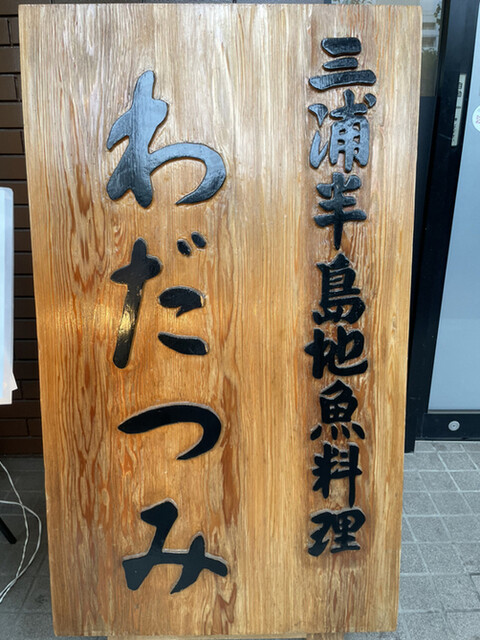 三浦半島地魚料理
わだつみ